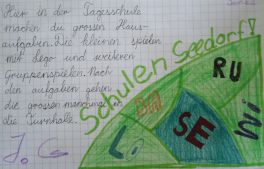 Hier in der Tagesschule
machen die grossen Haus-
aufgaben. Die kleinen spielen
mit Lego und weiteren
Gruppenspielen. Nach
den aufgaben gehen
die grossen manchmal in
die Turnhalle.
J. G
Schulen Seedorf!
RU
SE